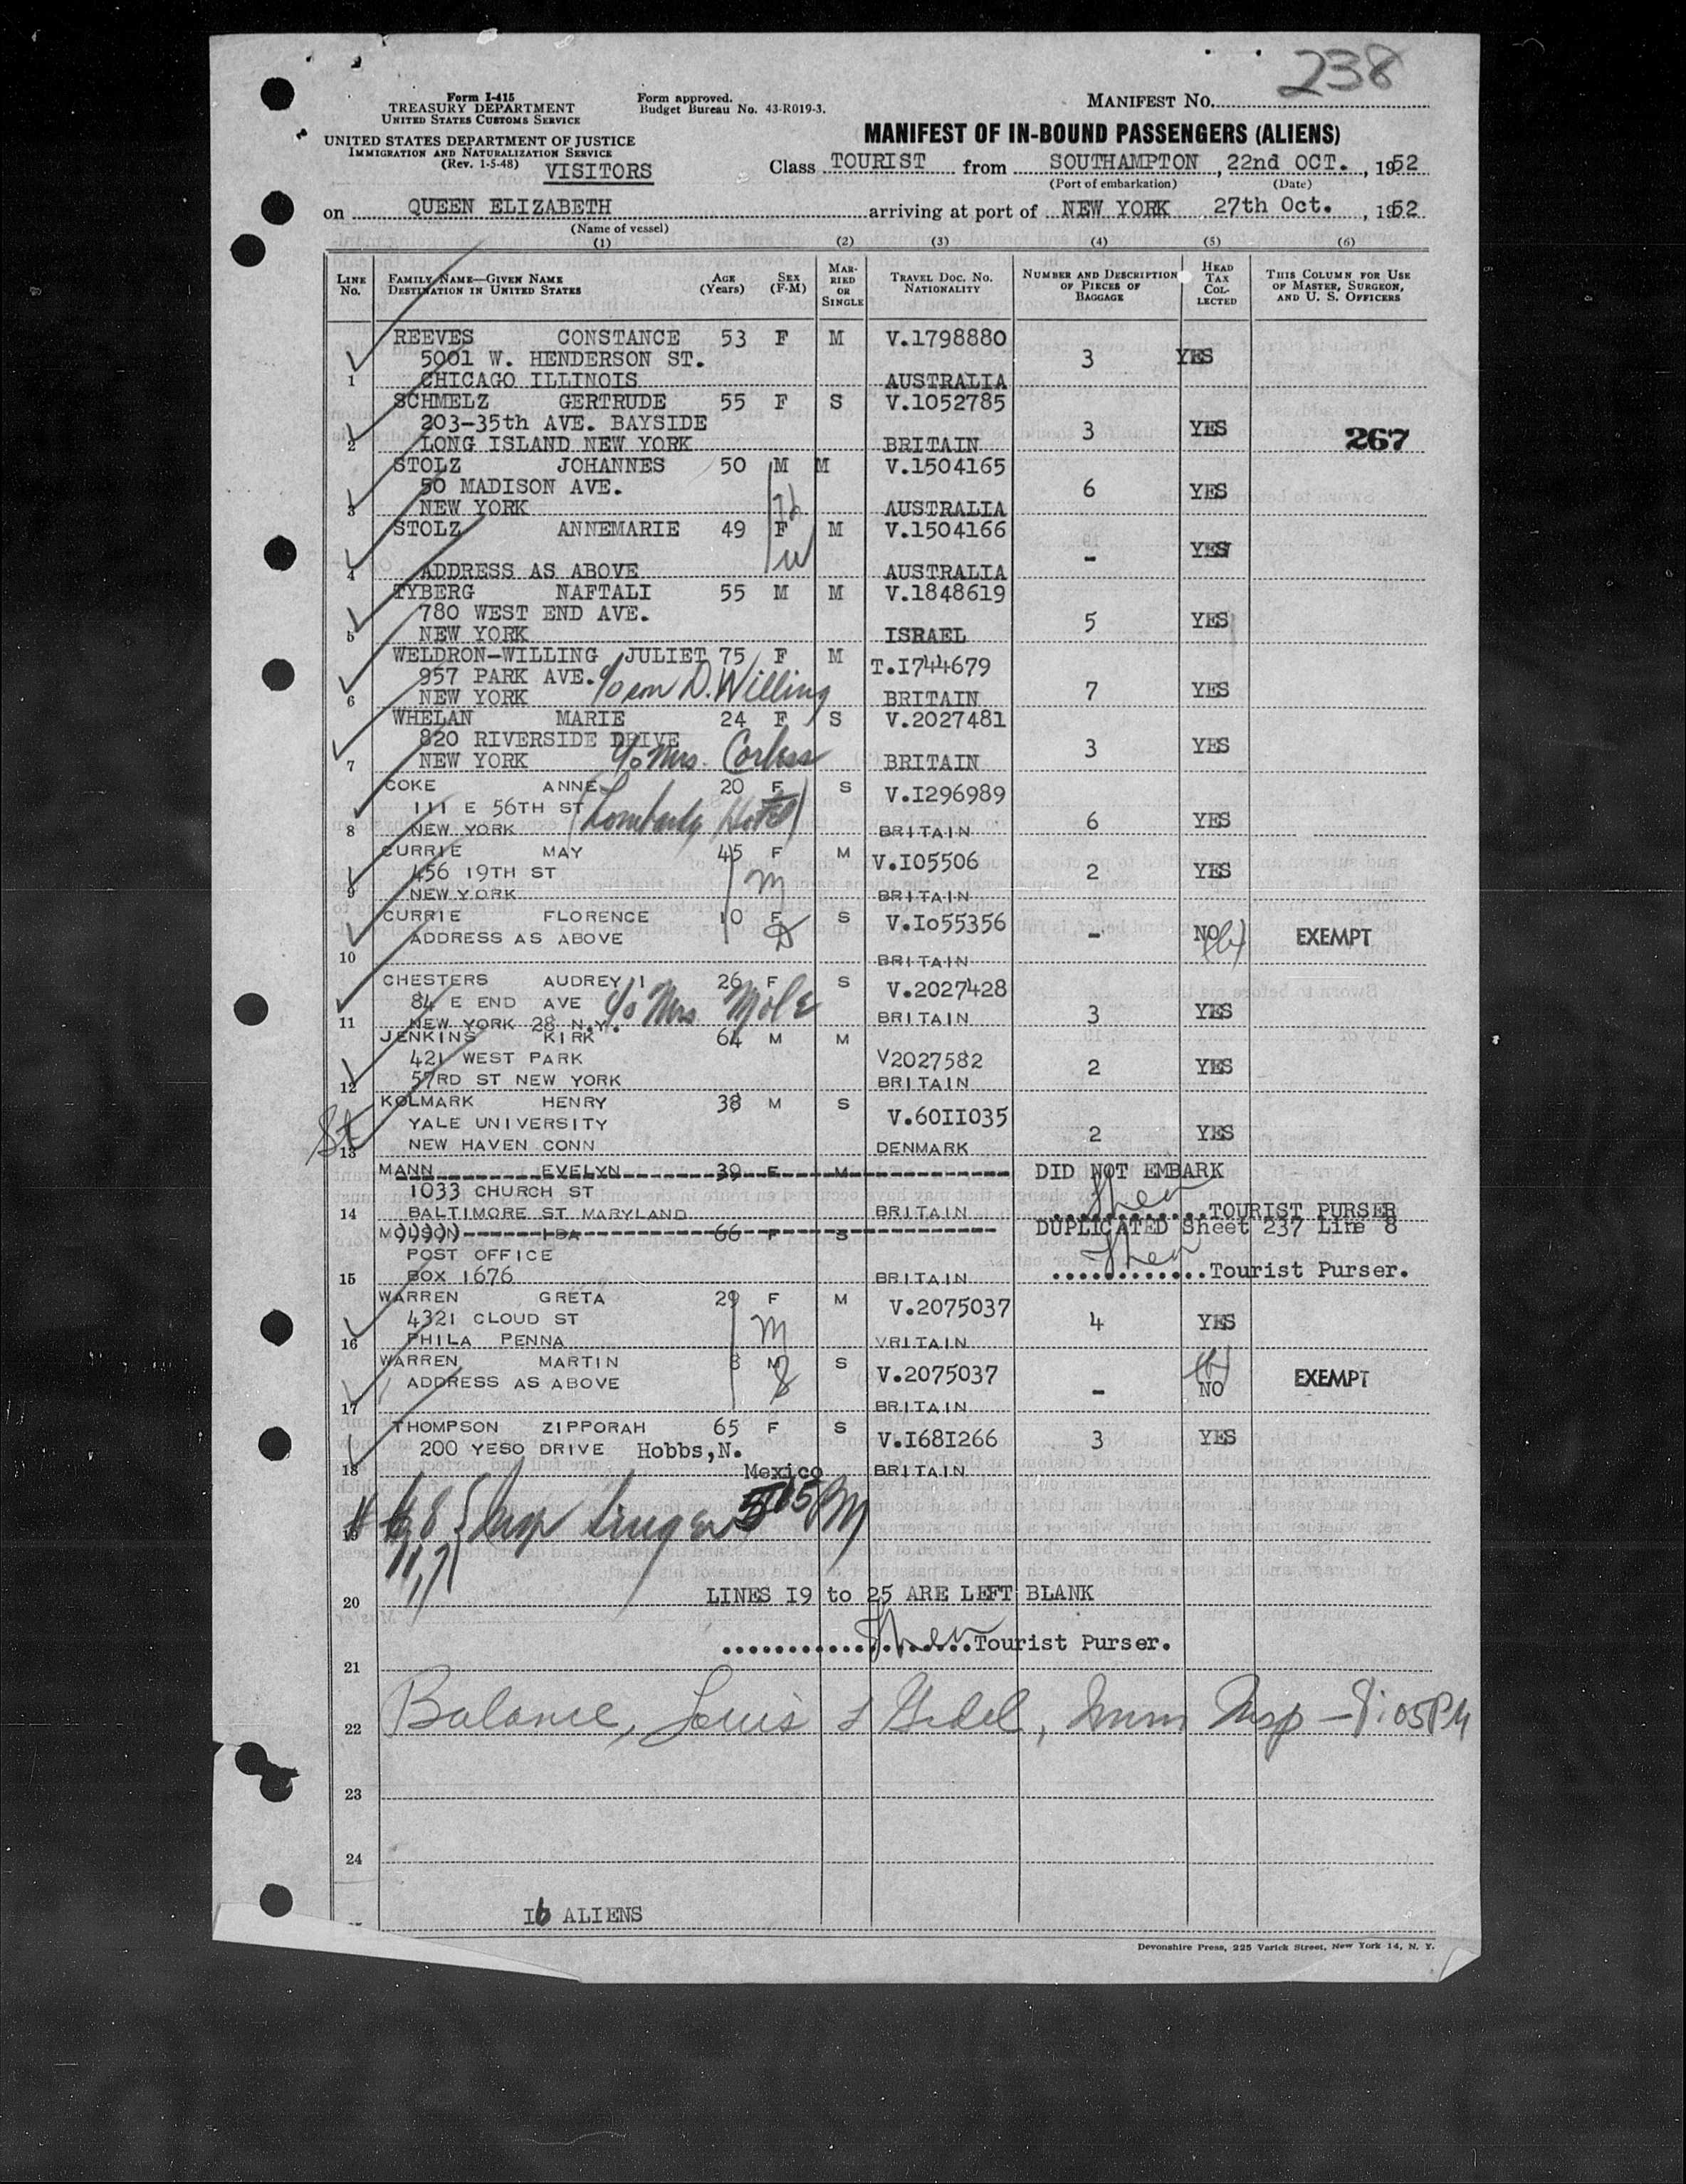 238
Form I-415
TREASURY DEPARTMENT
UNITED STATES CUSTOMS SERVICE
Form approved.
Budget Bureau No. 43-R019-3.
MANIFEST No.
UNITED STATES DEPARTMENT OF JUSTICE
IMMIGRATION AND NATURALIZATION SERVICE
(Rev. 1-5-48) VISITORS
MANIFEST OF IN-BOUND PASSENGERS (ALIENS)
Class TOURIST from SOUTHAMPTON, 22nd OCT., 1952
(Port of embarkation) (Date)
on QUEEN ELIZABETH arriving at port of NEW YORK 27th Oct., 1952
(Name of vessel)
(1) (2) (3) (4) (5) (6)
LINE No. FAMILY NAME—GIVEN NAME DESTINATION IN UNITED STATES AGE (Years) SEX (F-M) MARRIED OR SINGLE TRAVEL DOC. No. NATIONALITY NUMBER AND DESCRIPTION OF PIECES OF BAGGAGE HEAD TAX COLLECTED THIS COLUMN FOR USE OF MASTER, SURGEON, AND U. S. OFFICERS
REEVES CONSTANCE 53 F M V.1798880
5001 W. HENDERSON ST. 3 YES
1 CHICAGO ILLINOIS AUSTRALIA
SCHMELZ GERTRUDE 55 F S V.1052785
203-35th AVE. BAYSIDE 3 YES 267
2 LONG ISLAND NEW YORK BRITAIN
STOLZ JOHANNES 50 M M V.1504165
50 MADISON AVE. 6 YES
3 NEW YORK AUSTRALIA
STOLZ ANNEMARIE 49 F M V.1504166
- YES
4 ADDRESS AS ABOVE AUSTRALIA
TYBERG NAFTALI 55 M M V.1848619
780 WEST END AVE. 5 YES
5 NEW YORK ISRAEL
WELDRON-WILLING JULIET 75 F M T.I744679
957 PARK AVE. c/o son D. Willing
6 NEW YORK BRITAIN 7 YES
WHELAN MARIE 24 F S V.2027481
820 RIVERSIDE DRIVE 3 YES
7 NEW YORK c/o Mrs. Corless BRITAIN
COKE ANNE 20 F S V.I296989
111 E 56TH ST (Lombardy Hotel) 6 YES
8 NEW YORK BRITAIN
CURRIE MAY 45 F M V.I05506
456 19TH ST M 2 YES
9 NEW YORK BRITAIN
CURRIE FLORENCE 10 F S V.Io55356
ADDRESS AS ABOVE D - NO EXEMPT
10 BRITAIN
CHESTERS AUDREY 26 F S V.2027428
84 E END AVE c/o Mrs. Mole
11 NEW YORK 28 N.Y. BRITAIN 3 YES
JENKINS KIRK 64 M M
421 WEST PARK V2027582 2 YES
12 57RD ST NEW YORK BRITAIN
KOLMARK HENRY 38 M S V.60II035
YALE UNIVERSITY 2 YES
13 NEW HAVEN CONN DENMARK
MANN EVELYN 39 F M DID NOT EMBARK
1033 CHURCH ST
14 BALTIMORE ST MARYLAND BRITAIN TOURIST PURSER
IDA 66 F S DUPLICATED Sheet 237 Line 8
POST OFFICE
15 BOX 1676 BRITAIN Tourist Purser.
WARREN GRETA 29 F M V.2075037
4321 CLOUD ST M 4 YES
16 PHILA PENNA VRITAIN
WARREN MARTIN 8 M S V.2075037
ADDRESS AS ABOVE - NO EXEMPT
17 BRITAIN
THOMPSON ZIPPORAH 65 F S V.I68I266 3 YES
200 YESO DRIVE Hobbs, N.
18 Mexico BRITAIN
19
20 LINES I9 to 25 ARE LEFT BLANK
Tourist Purser.
21
22 Balance, Louis Insp - 8:05 PM
23
24
I6 ALIENS
Devonshire Press, 225 Varick Street, New York 14, N. Y.